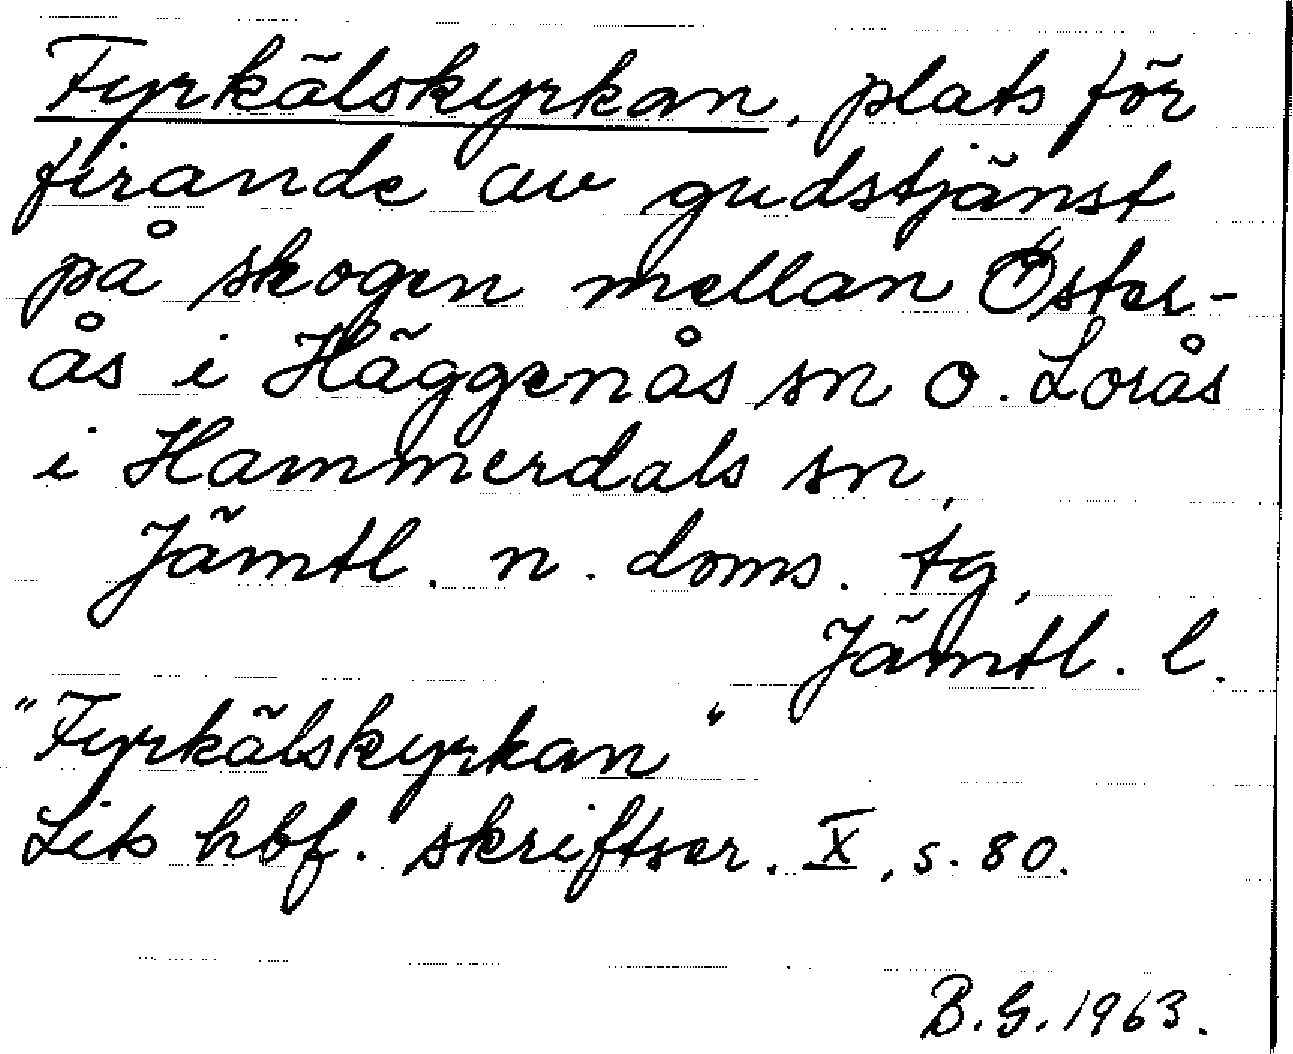 Fyrkälskyrkan, plats för
firande av gudstjänst
på skogen mellan Öster-
ås i Häggenås sn o. Lorås
i Hammerdals sn,
Jämtl. n. doms. tg,
Jämtl. l.
"Fyrkälskyrkan"
Lits hbf. skriftser. X, s. 80.
B.G. 1963.